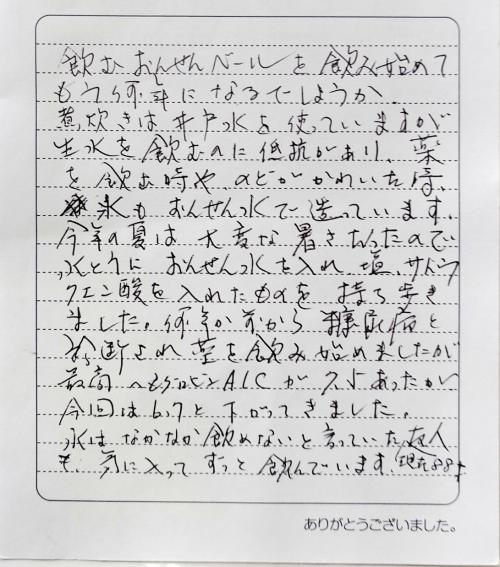 飲むおんせんベールを飲み始めて
もう何年になるでしょうか
煮炊きは井戸水を使っていますが
生水を飲むのに抵抗があり、薬
を飲む時や、のどがかわいた時、
氷もおんせん水で造っています。
今年の夏は大変な暑さだったので
水とうにおんせん水を入れ、塩、サトウ
クエン酸を入れたものを持ち歩き
ました。何年か前から糖尿病と
診断され薬を飲み始めましたが
最高ヘモグロビンA1Cが7.5あったが
今回は6.7と下がってきました。
水はなかなか飲めないと言っていた友人
も、気に入ってずっと飲んでいます。現在88才
ありがとうございました。